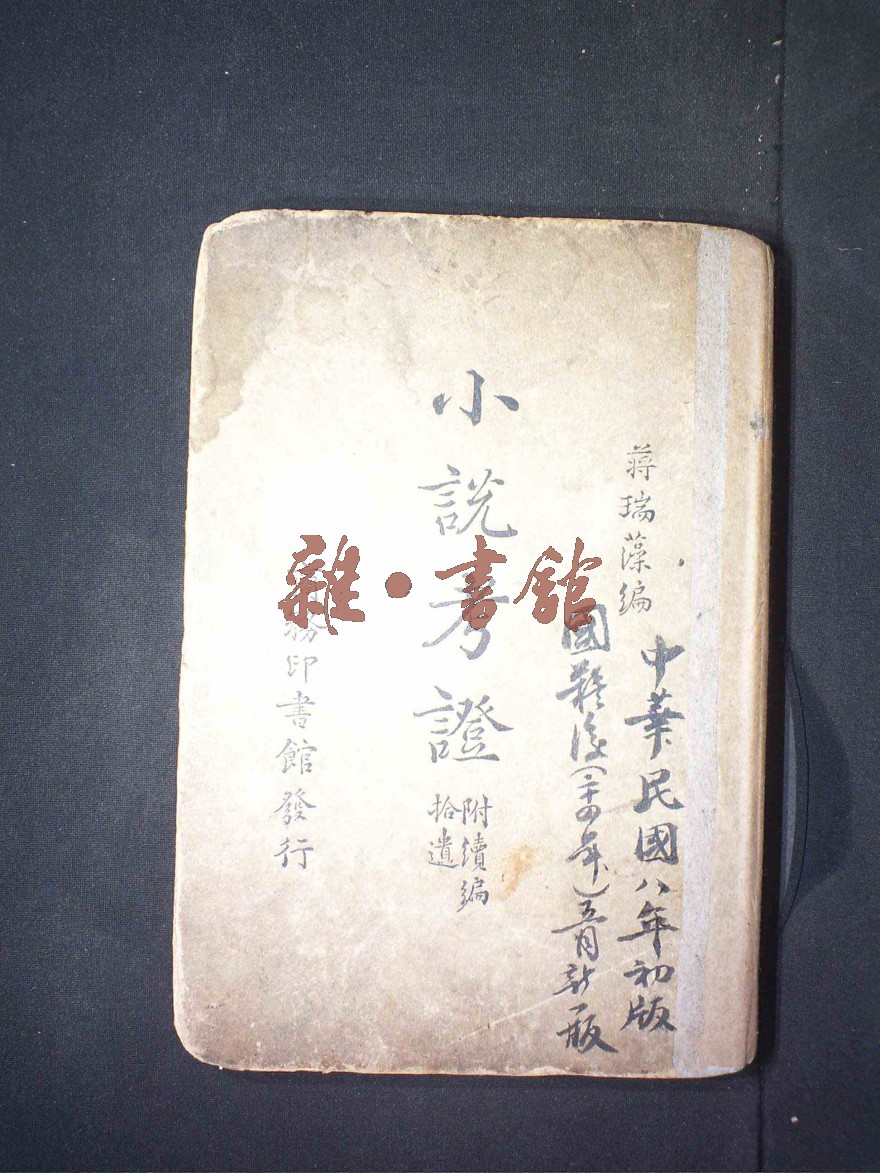 蔣瑞藻編
中華民國八年初版
國難後(二十四年)五月新一版
小說考證
附續編
拾遺
商務印書館發行
雜·書館